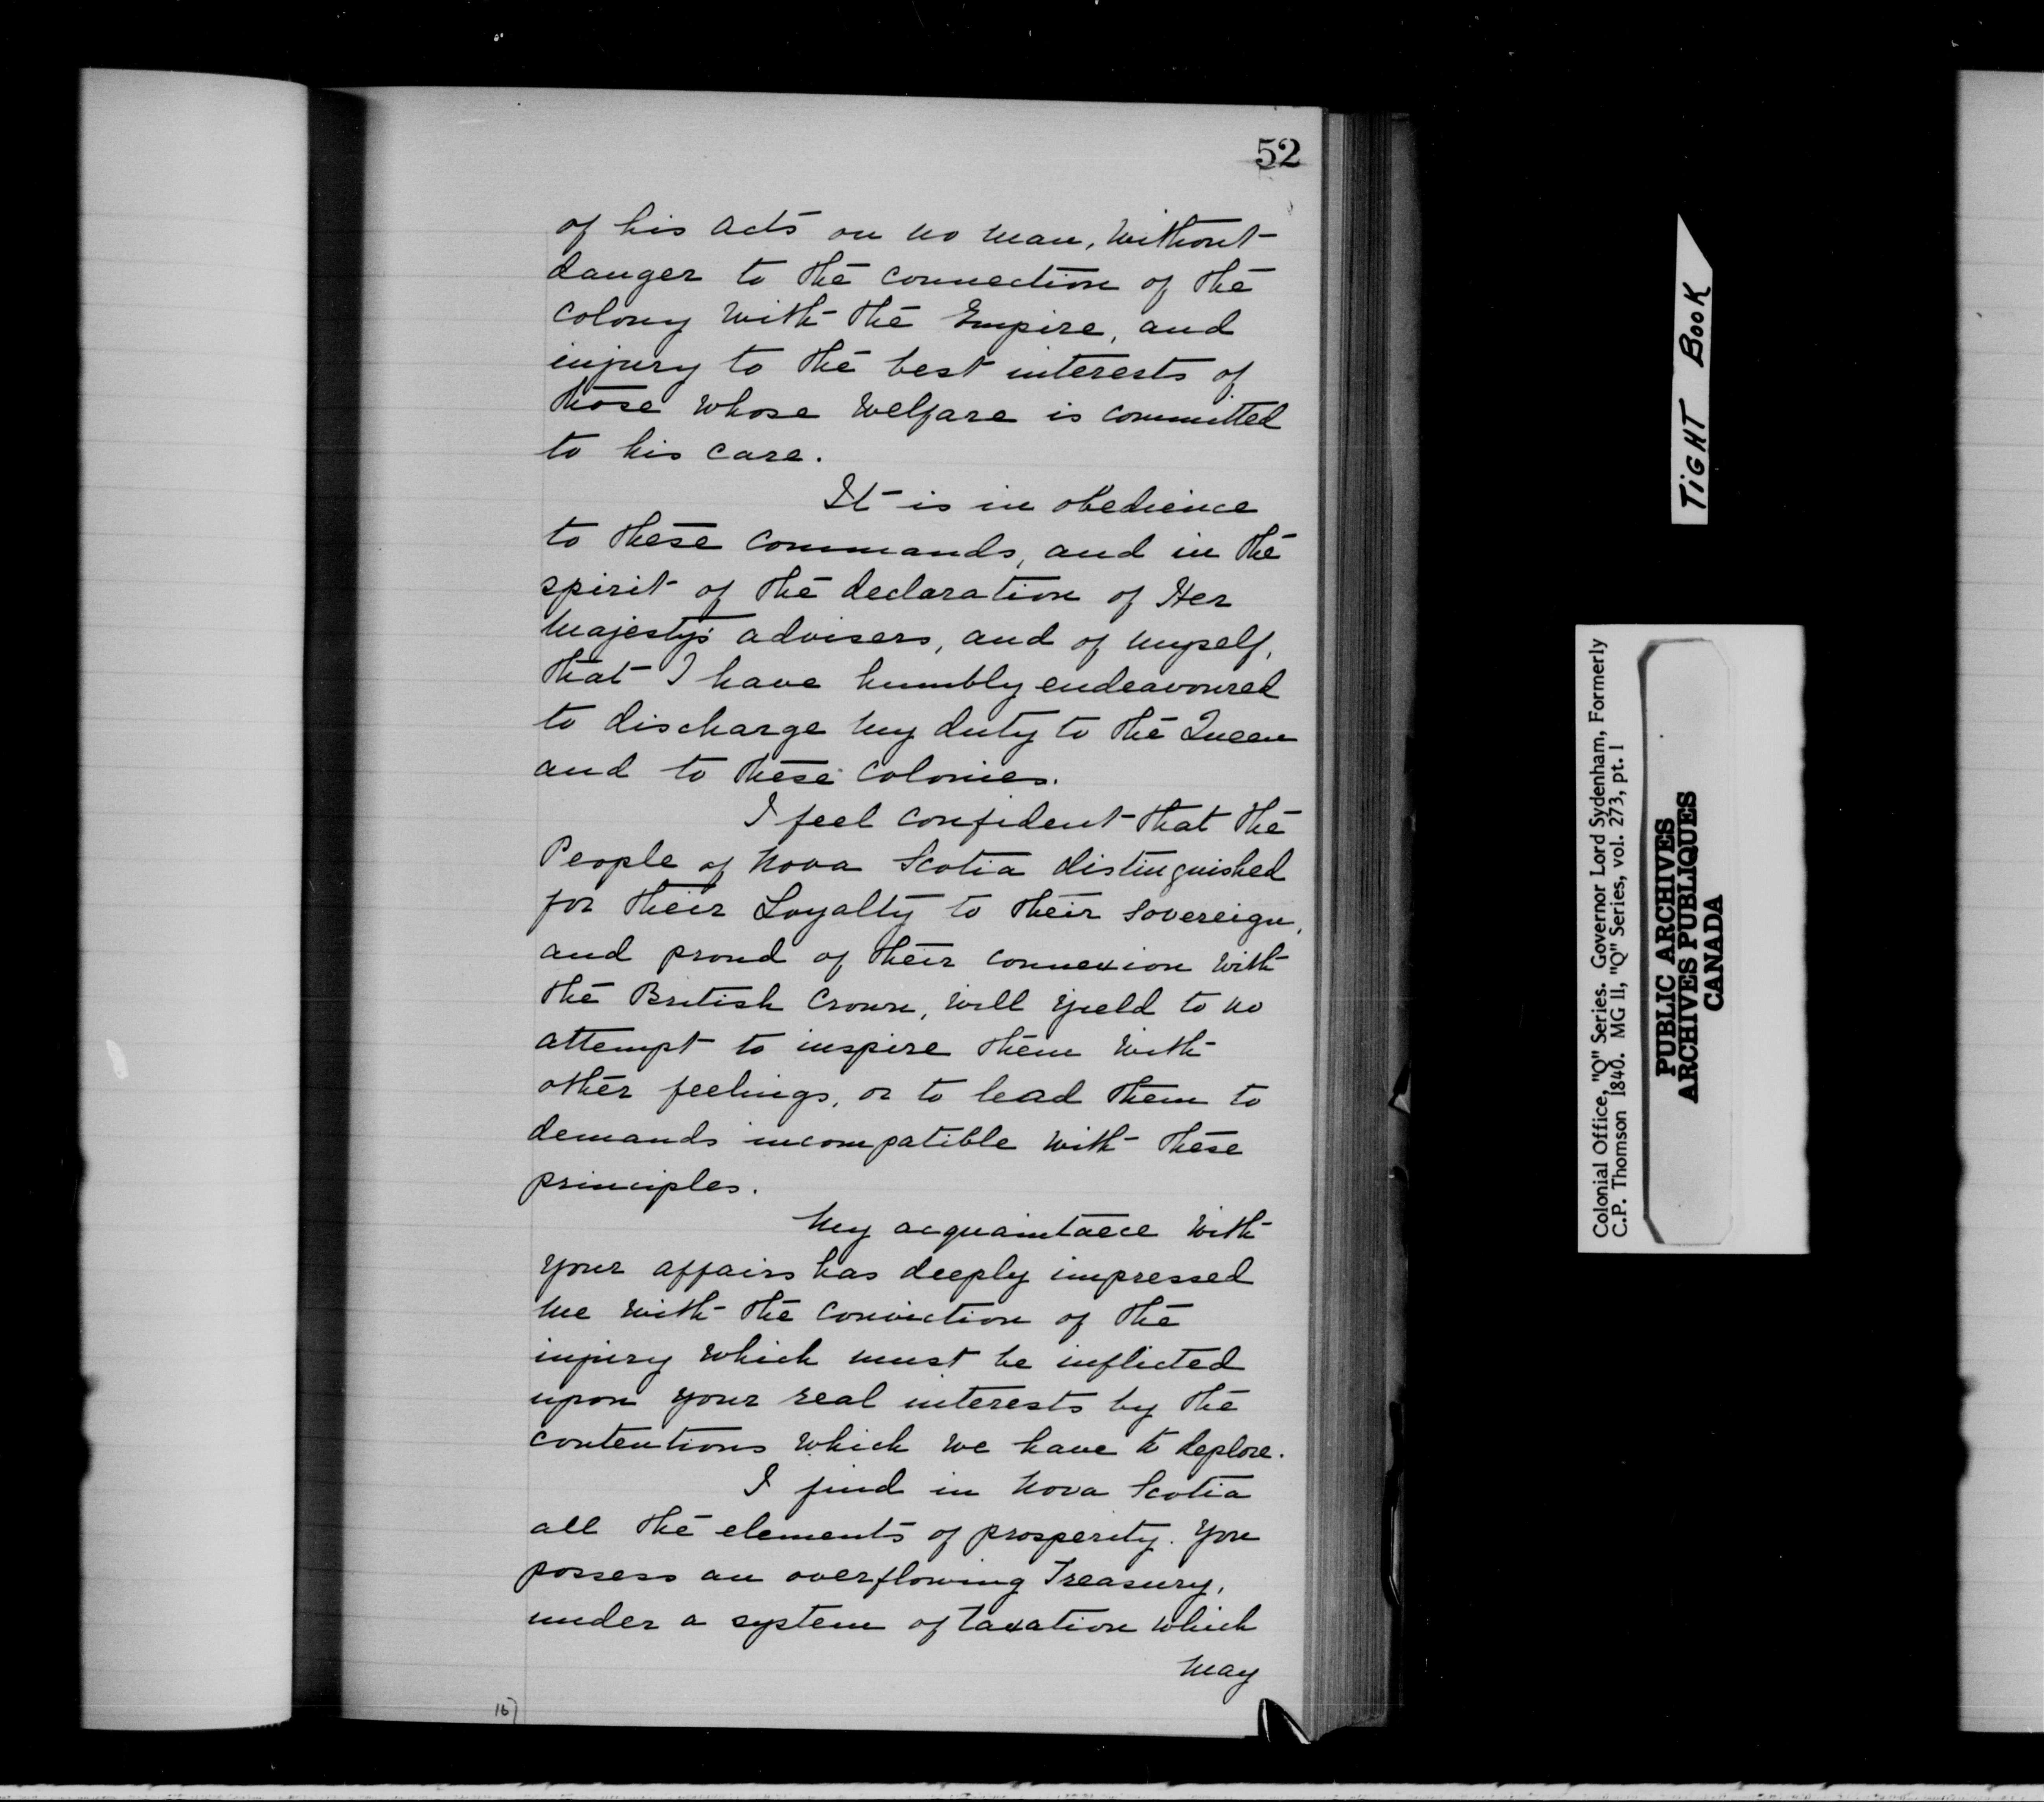 52
of his acts on no man, without
danger to the connection of the
colony with the Empire, and
injury to the best interests of
those whose welfare is committed
to his care.
It is in obedience
to these commands, and in the
spirit of the declaration of Her
Majesty's advisers, and of myself,
that I have humbly endeavoured
to discharge my duty to the Queen
and to these colonies.
I feel confident that the
People of Nova Scotia distinguished
for their Loyalty to their Sovereign,
and proud of their connexion with
the British Crown, will yield to no
attempt to inspire them with
other feelings, or to lead them to
demands incompatible with these
principles.
My acquaintaece with
your affairs has deeply impressed
me with the conviction of the
injury which must be inflicted
upon your real interests by the
contentions which we have to deplore.
I find in Nova Scotia
all the elements of prosperity. You
possess an overflowing Treasury,
under a system of taxation which
may
16)
TIGHT BOOK
Colonial Office, "Q" Series. Governor Lord Sydenham, Formerly
C.P. Thomson 1840. MG 11, "Q" Series, vol. 273, pt. 1
PUBLIC ARCHIVES
ARCHIVES PUBLIQUES
CANADA